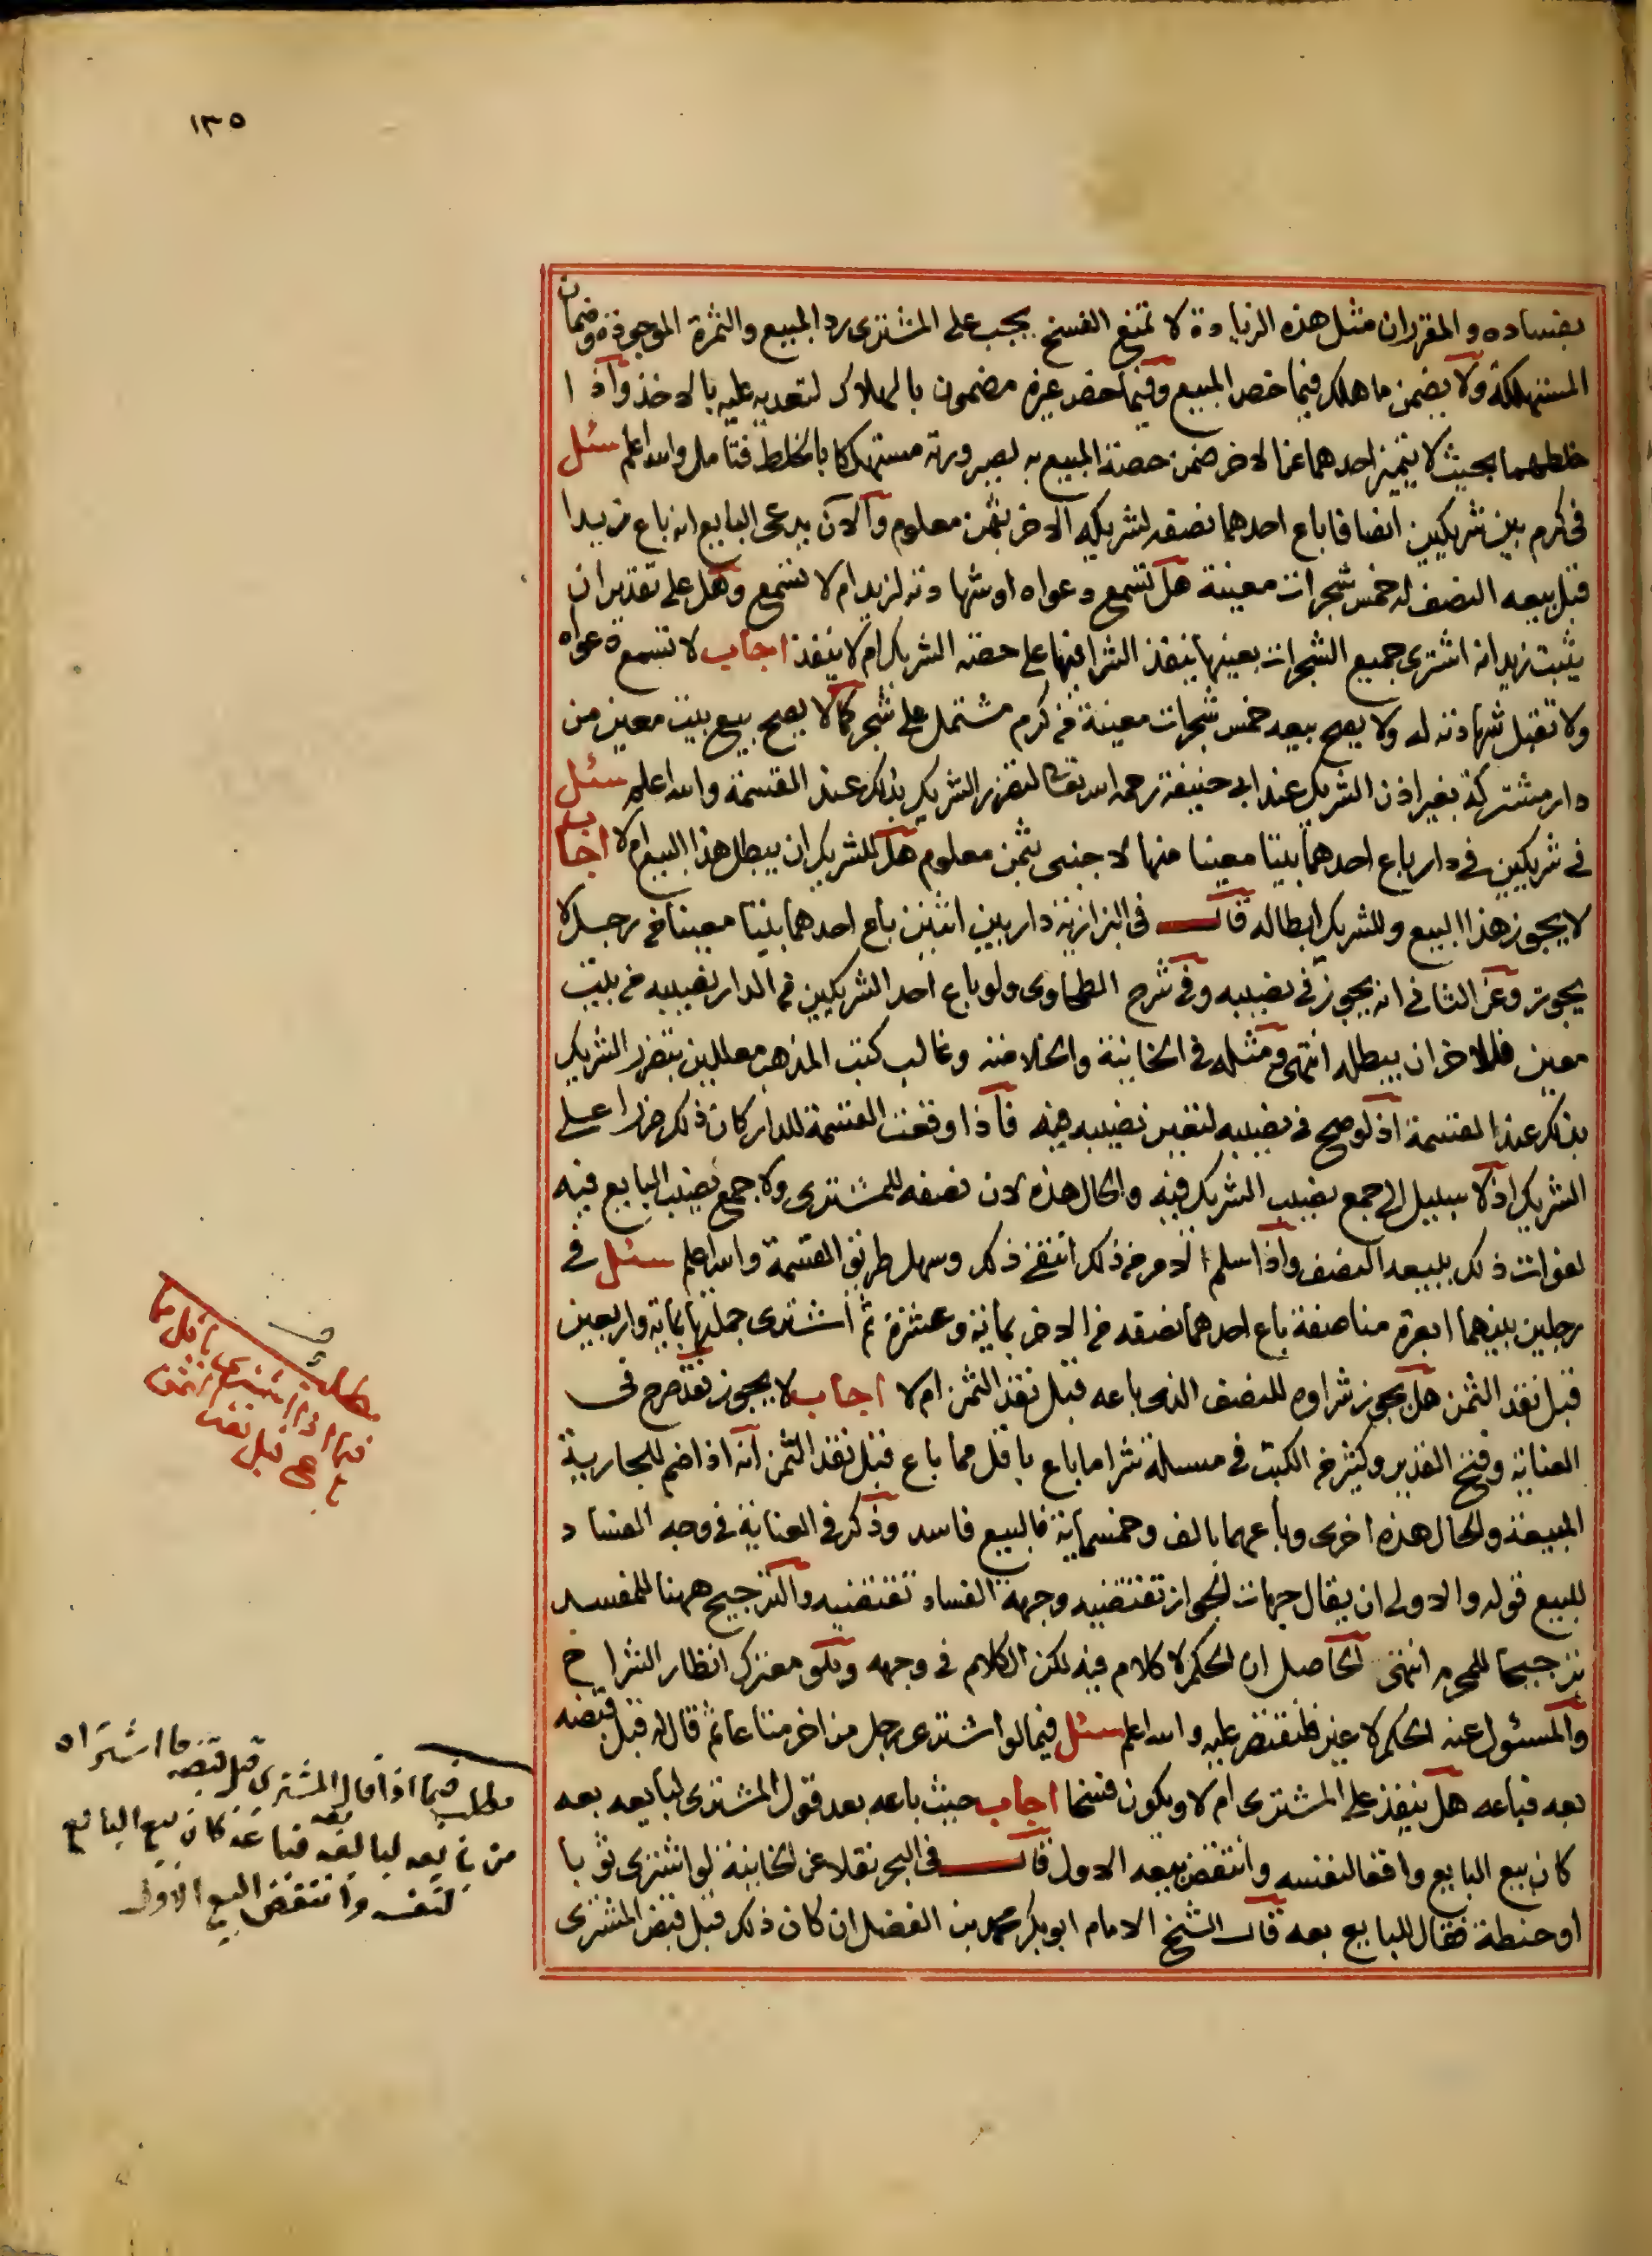 ١٣٥
بفساده والمقرر ان مثل هذه الزيادة لا تمنع الفسخ يجب على المشترى رد المبيع والثمرة الموجودة وضمان
المستهلكة ولا يضمن ما هلك فيما خص المبيع وفيما خص غيره مضمون بالهلاك لتعديه عليه بالاخذ واذا
خلطهما بحيث لا يتميز احدهما عن الاخر ضمن حصة المبيع به لصيرورته مستهلكا بالخلط فتامل والله اعلم سئل
فى كرم بين شريكين انصافا باع احدهما نصفه لشريكه الاخر بثمن معلوم والان يدعى البايع انه باع زيدا
قبل بيعه النصف له خمس شجرات معينة هل تسمع دعواه او شهادته لزيد ام لا تسمع وهل على تقدير ان
يثبت زيد انه اشترى جميع الشجرات بعينها ينفذ الشرا فيها على حصة الشريك ام لا ينفذ اجاب لا تسمع دعواه
ولا تقبل شهادته له ولا يصح بيعه خمس شجرات معينة فى كرم مشتمل على شجر كما لا يصح بيع بيت معين من
دار مشتركة بغير اذن الشريك عند ابى حنيفة رحمه الله تعالى لتضرر الشريك بذلك عند القسمة والله اعلم سئل
فى شريكين فى دار باع احدهما بيتا معينا منها لاجنبى بثمن معلوم هل للشريك ان يبطل هذا البيع ام لا اجاب
لا يجوز هذا البيع وللشريك ابطاله قال فى البزازية دار بين اثنين باع احدهما بيتا معينا من رجل لا
يجوز وعن الثانى انه يجوز فى نصيبه وفى شرح الطحاوى ولو باع احد الشريكين من الدار نصيبه من بيت
معين فللاخر ان يبطله انتهى ومثله فى الخانية والخلاصة وغالب كتب المذهب معللين بتضرر الشريك
بذلك عند القسمة اذ لو صح فى نصيبه لتعين نصيبه فيه فاذا وقعت القسمة للدار كان ذلك ضررا على
الشريك اذ لا سبيل الى جمع نصيب الشريك فيه والحال هذه لان نصفه للمشترى ولا جمع نصيب البايع فيه
لفوات ذلك ببيعه النصف واذا سلم الامر من ذلك انتفى ذلك وسهل طريق القسمة والله اعلم سئل فى
رجلين بينهما ابعرة مناصفة باع احدهما نصفه من الاخر بماية وعشرة ثم اشترى جملتها بماية واربعين
قبل نقد الثمن هل يجوز شراوه للنصف الذى باعه قبل نقد الثمن ام لا اجاب لا يجوز فقد صرح فى
العناية وفتح القدير وكثير من الكتب فى مسالة شرا ما باع باقل مما باع قبل نقد الثمن انه اذا ضم للجارية
المبيعة والحال هذه اخرى وباعهما بالف وخمسماية فالبيع فاسد وذكر فى العناية فى وجه الفساد
للبيع قوله والاولى ان يقال جهات الجواز تقتضيه وجهة الفساد تقتضيه والترجيح ههنا للمفسد
ترجيحا للمحرم انتهى الحاصل ان الحكم لا كلام فيه لكن الكلام فى وجهه وهو معترك انظار الشراح
والمسئول عنه الحكم لا غير فلنقتصر عليه والله اعلم سئل فيما لو اشترى رجل من اخر متاعا ثم قال له قبل قبضه
بعه فباعه هل ينفذ على المشترى ام لا ويكون فسخا اجاب حيث باعه بعد قول المشترى لبايعه بعه
كان بيع البايع واقعا لنفسه وانتقض بيعه الاول قال فى البحر نقلا عن الخانية لو اشترى ثوبا
او حنطة فقال للبايع بعه قال الشيخ الامام ابو بكر محمد بن الفضل ان كان ذلك قبل قبض المشترى
مطلب
فيما اذا اشترى باقل مما
باع قبل نقد الثمن
مطلب فيما اذا قال المشترى قبل قبضه ما اشتراه
من بايعه لبايعه بعه فباعه كان بيع البايع
لنفسه وانتقض البيع الاول